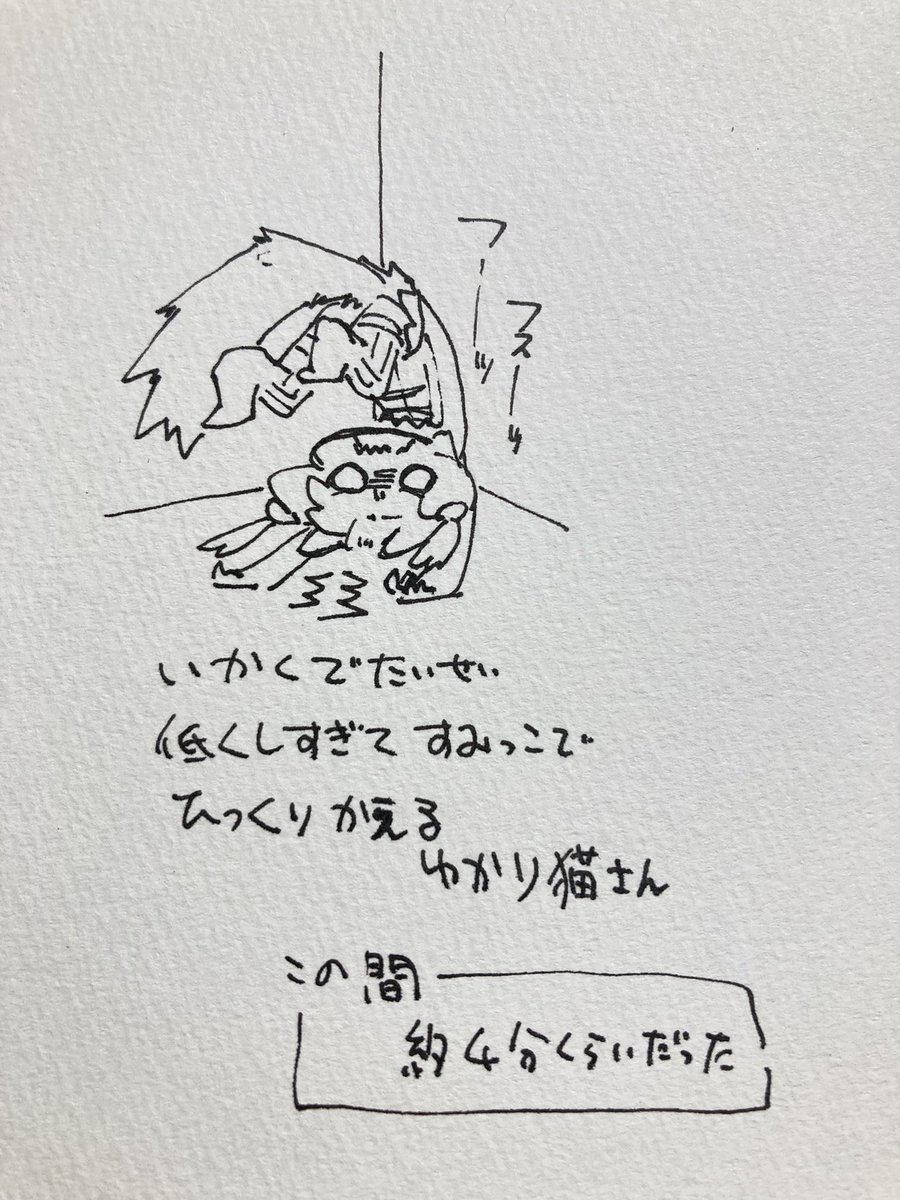 フーッ
フスーッ
いかくでたいせい
低くしすぎて すみっこで
ひっくりかえる
ゆかり猫さん
この間
約4分くらいだった